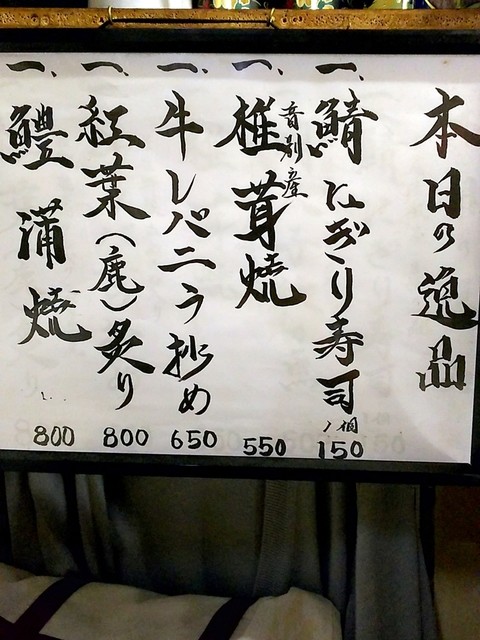 本日の逸品
一、鯖にぎり寿司 1個 150
一、音別産椎茸焼 550
一、牛レバニラ炒め 650
一、紅葉(鹿)炙り 800
一、鱧蒲焼 800